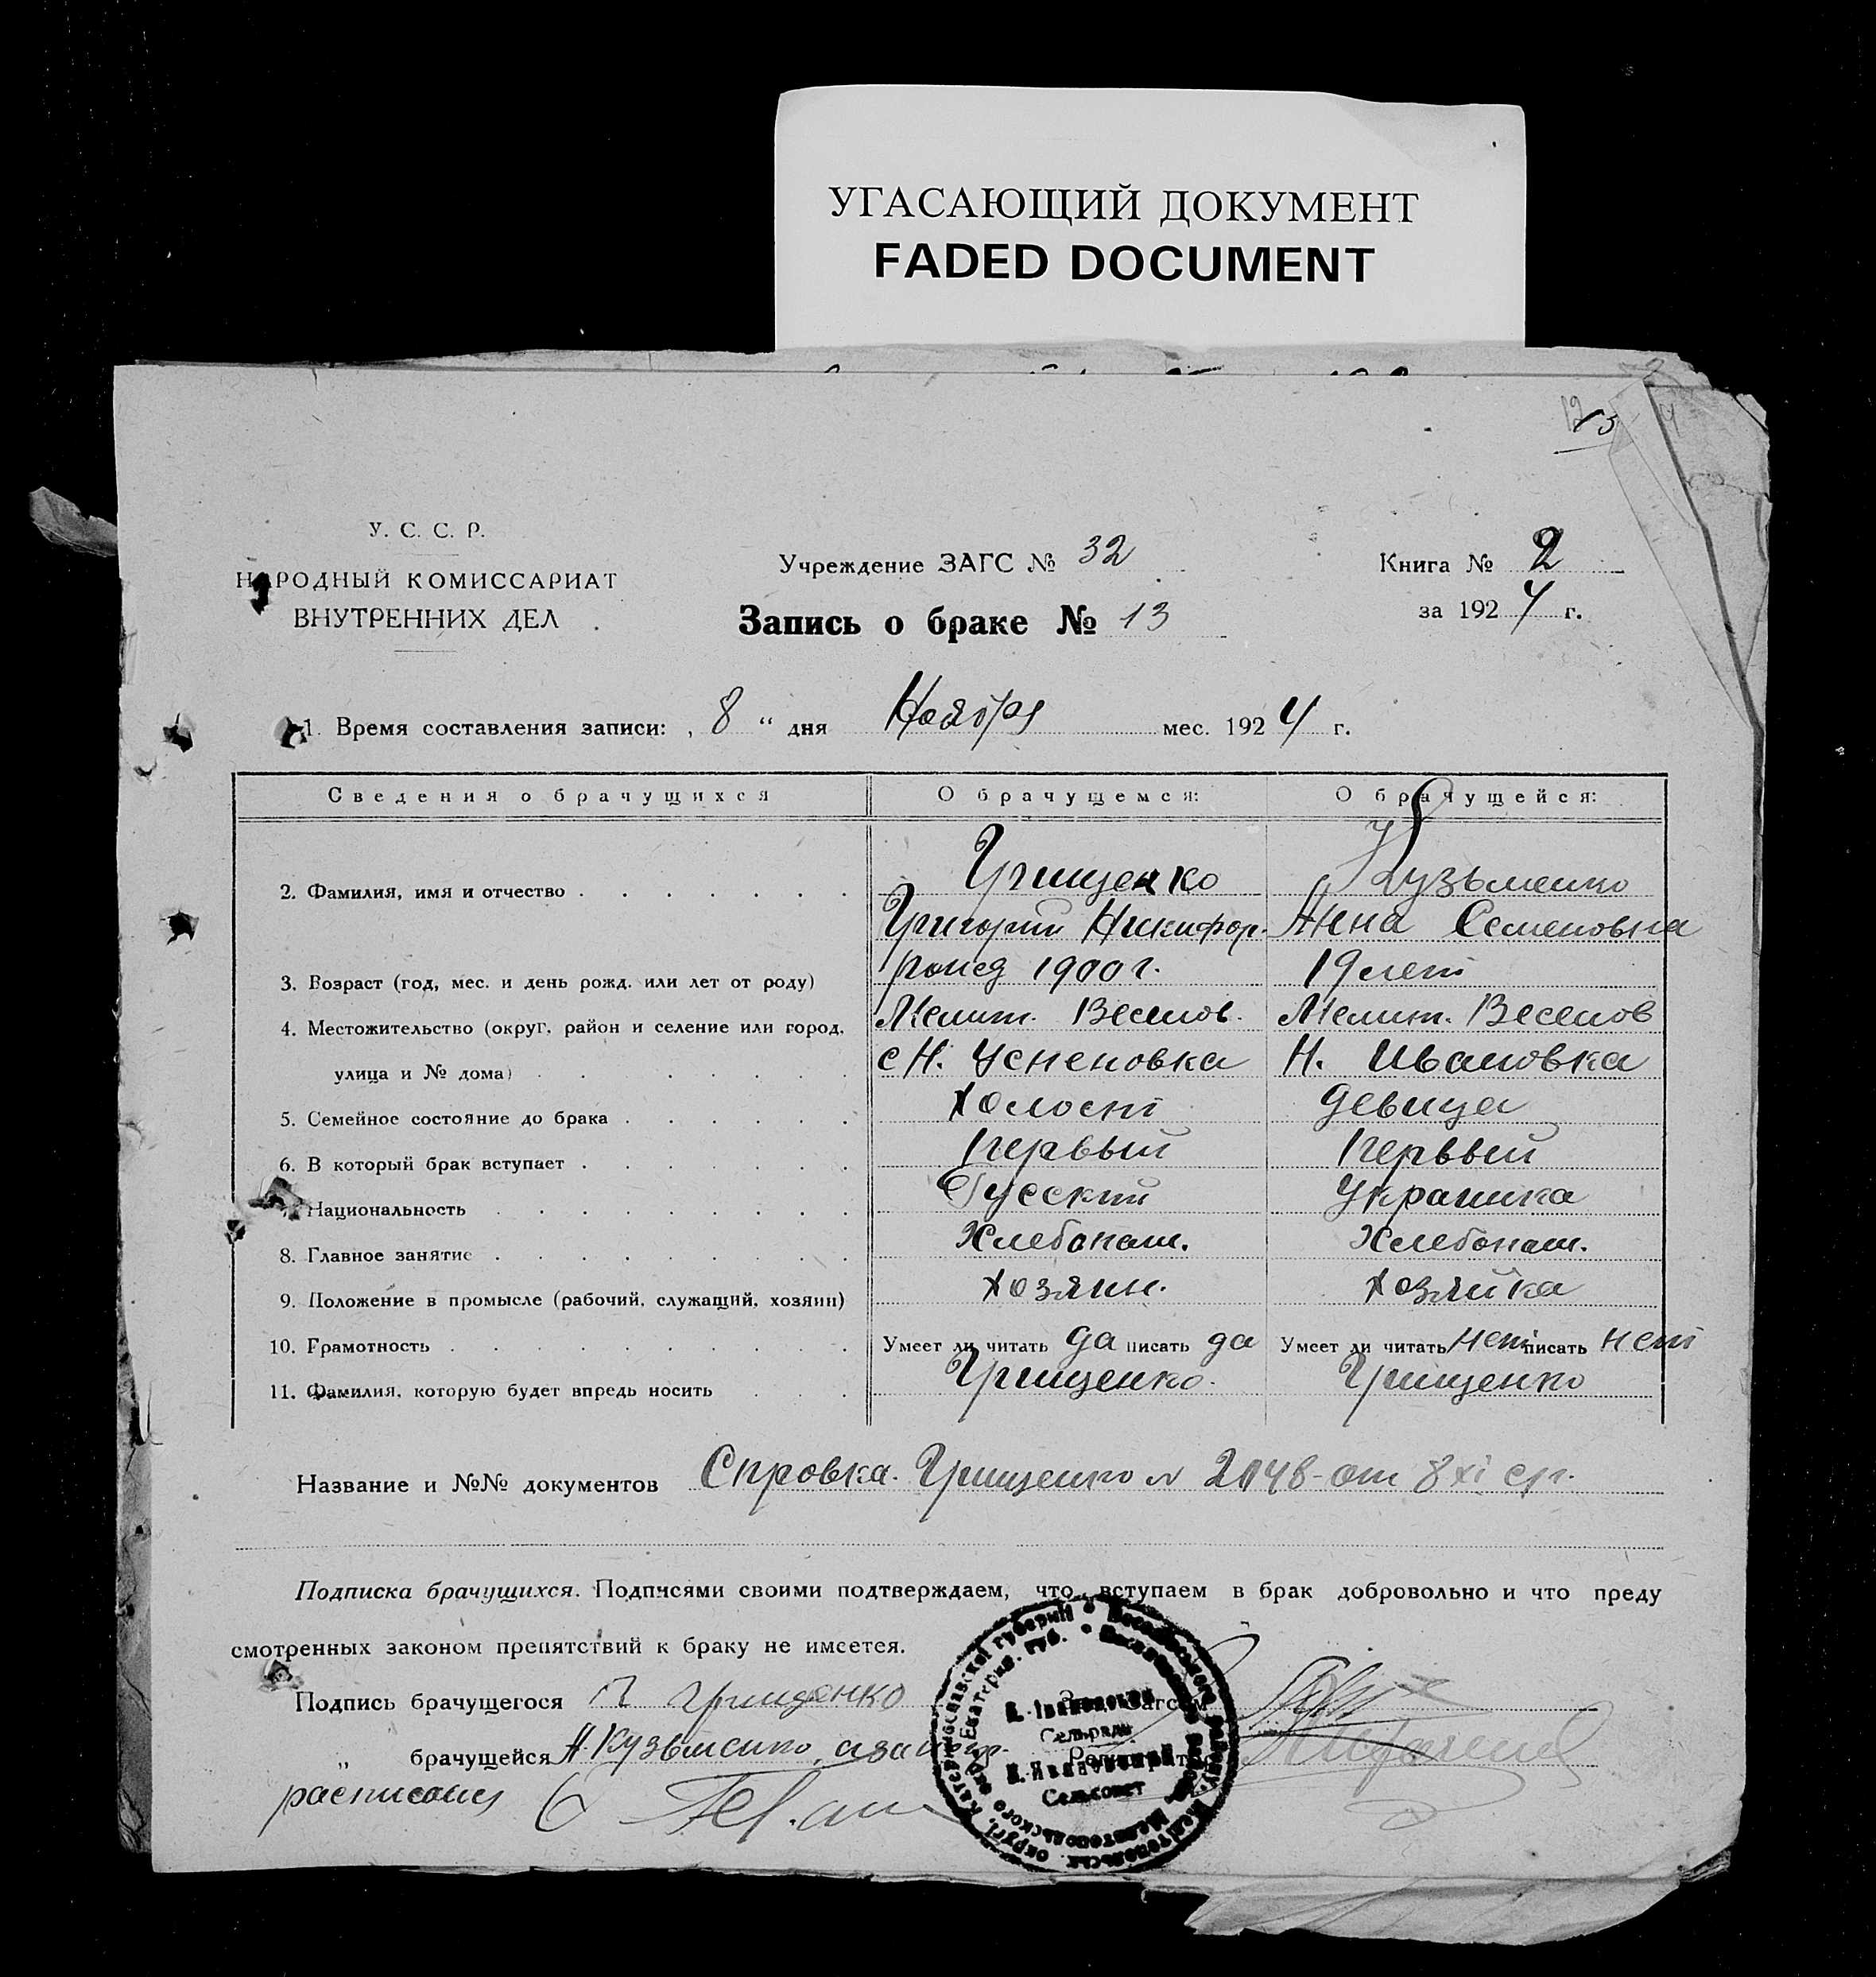 УГАСАЮЩИЙ ДОКУМЕНТ
FADED DOCUMENT
У. С. С. Р.
НАРОДНЫЙ КОМИССАРИАТ
ВНУТРЕННИХ ДЕЛ
Учреждение ЗАГС № 32
Запись о браке № 13
Книга № 2
за 1924 г.
1. Время составления записи: „ 8 “ дня Ноября мес. 1924 г.
Сведения о брачущихся О брачущемся: О брачущейся:
2. Фамилия, имя и отчество Грищенко Кузьменко
Григорий Никифор. Анна Семеновна
3. Возраст (год, мес. и день рожд. или лет от роду) рожд 1900 г. 19 лет
4. Местожительство (округ, район и селение или город, Мелит. Веселов. Мелит. Веселов
улица и № дома) с Н. Успеновка Н. Ивановка
5. Семейное состояние до брака Холост девица
6. В который брак вступает Первый Первый
7. Национальность Русский Украинка
8. Главное занятие Хлебопаш. Хлебопаш.
9. Положение в промысле (рабочий, служащий, хозяин) Хозяин. Хозяйка
10. Грамотность Умеет ли читать да писать да Умеет ли читать нет писать нет
11. Фамилия, которую будет впредь носить Грищенко. Грищенко
Название и №№ документов Справка. Грищенко N 2148 от 8 XI с/г.
Подписка брачущихся. Подписями своими подтверждаем, что вступаем в брак добровольно и что преду
смотренных законом препятствий к браку не имеется.
Подпись брачущегося Г Грищенко Загсом
„ брачущейся А Кузьменко, а за
расписался
Н. Ивановский
Сельсовет